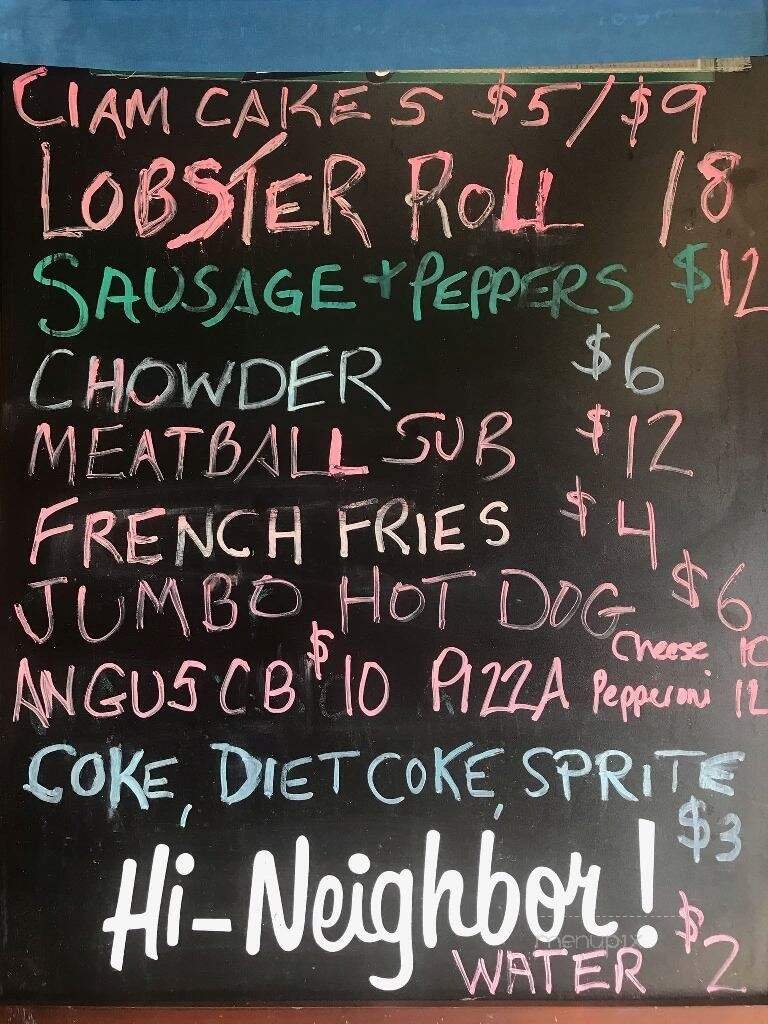 CLAM CAKES $5/$9
LOBSTER ROLL 18
SAUSAGE + PEPPERS $12
CHOWDER $6
MEATBALL SUB $12
FRENCH FRIES $4
JUMBO HOT DOG $6
ANGUS CB $10 PIZZA Cheese 10
Pepperoni 12
COKE, DIET COKE, SPRITE
$3
Hi-Neighbor!
WATER $2
menupix